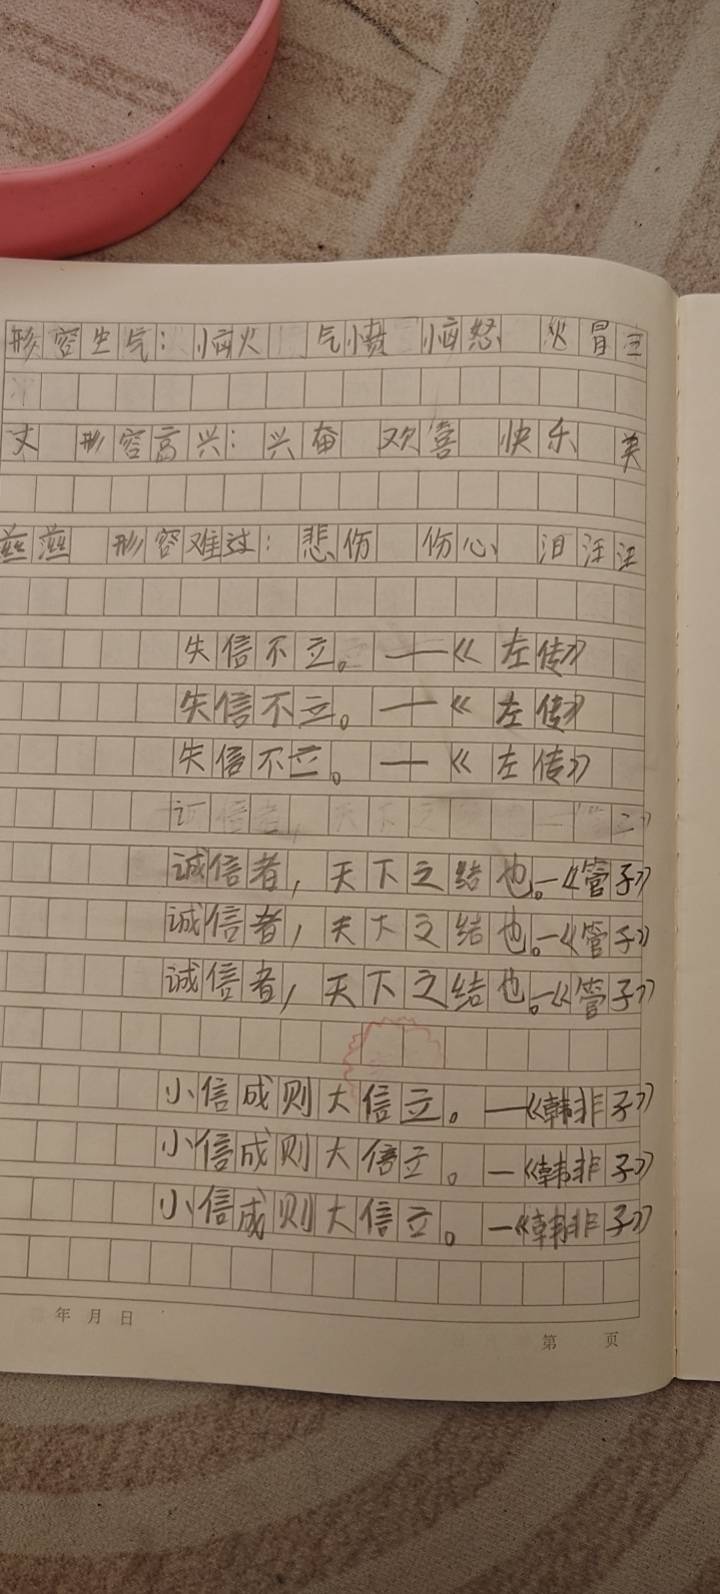 形容生气：恼火 气愤 恼怒 火冒三
丈 形容高兴：兴奋 欢喜 快乐 美
滋滋 形容难过：悲伤 伤心 泪汪汪
失信不立。——《左传》
失信不立。——《左传》
失信不立。——《左传》
诚信者，天下之结也。—《管子》
诚信者，天下之结也。—《管子》
诚信者，天下之结也。—《管子》
小信成则大信立。—《韩非子》
小信成则大信立。—《韩非子》
小信成则大信立。—《韩非子》
年 月 日
第 页